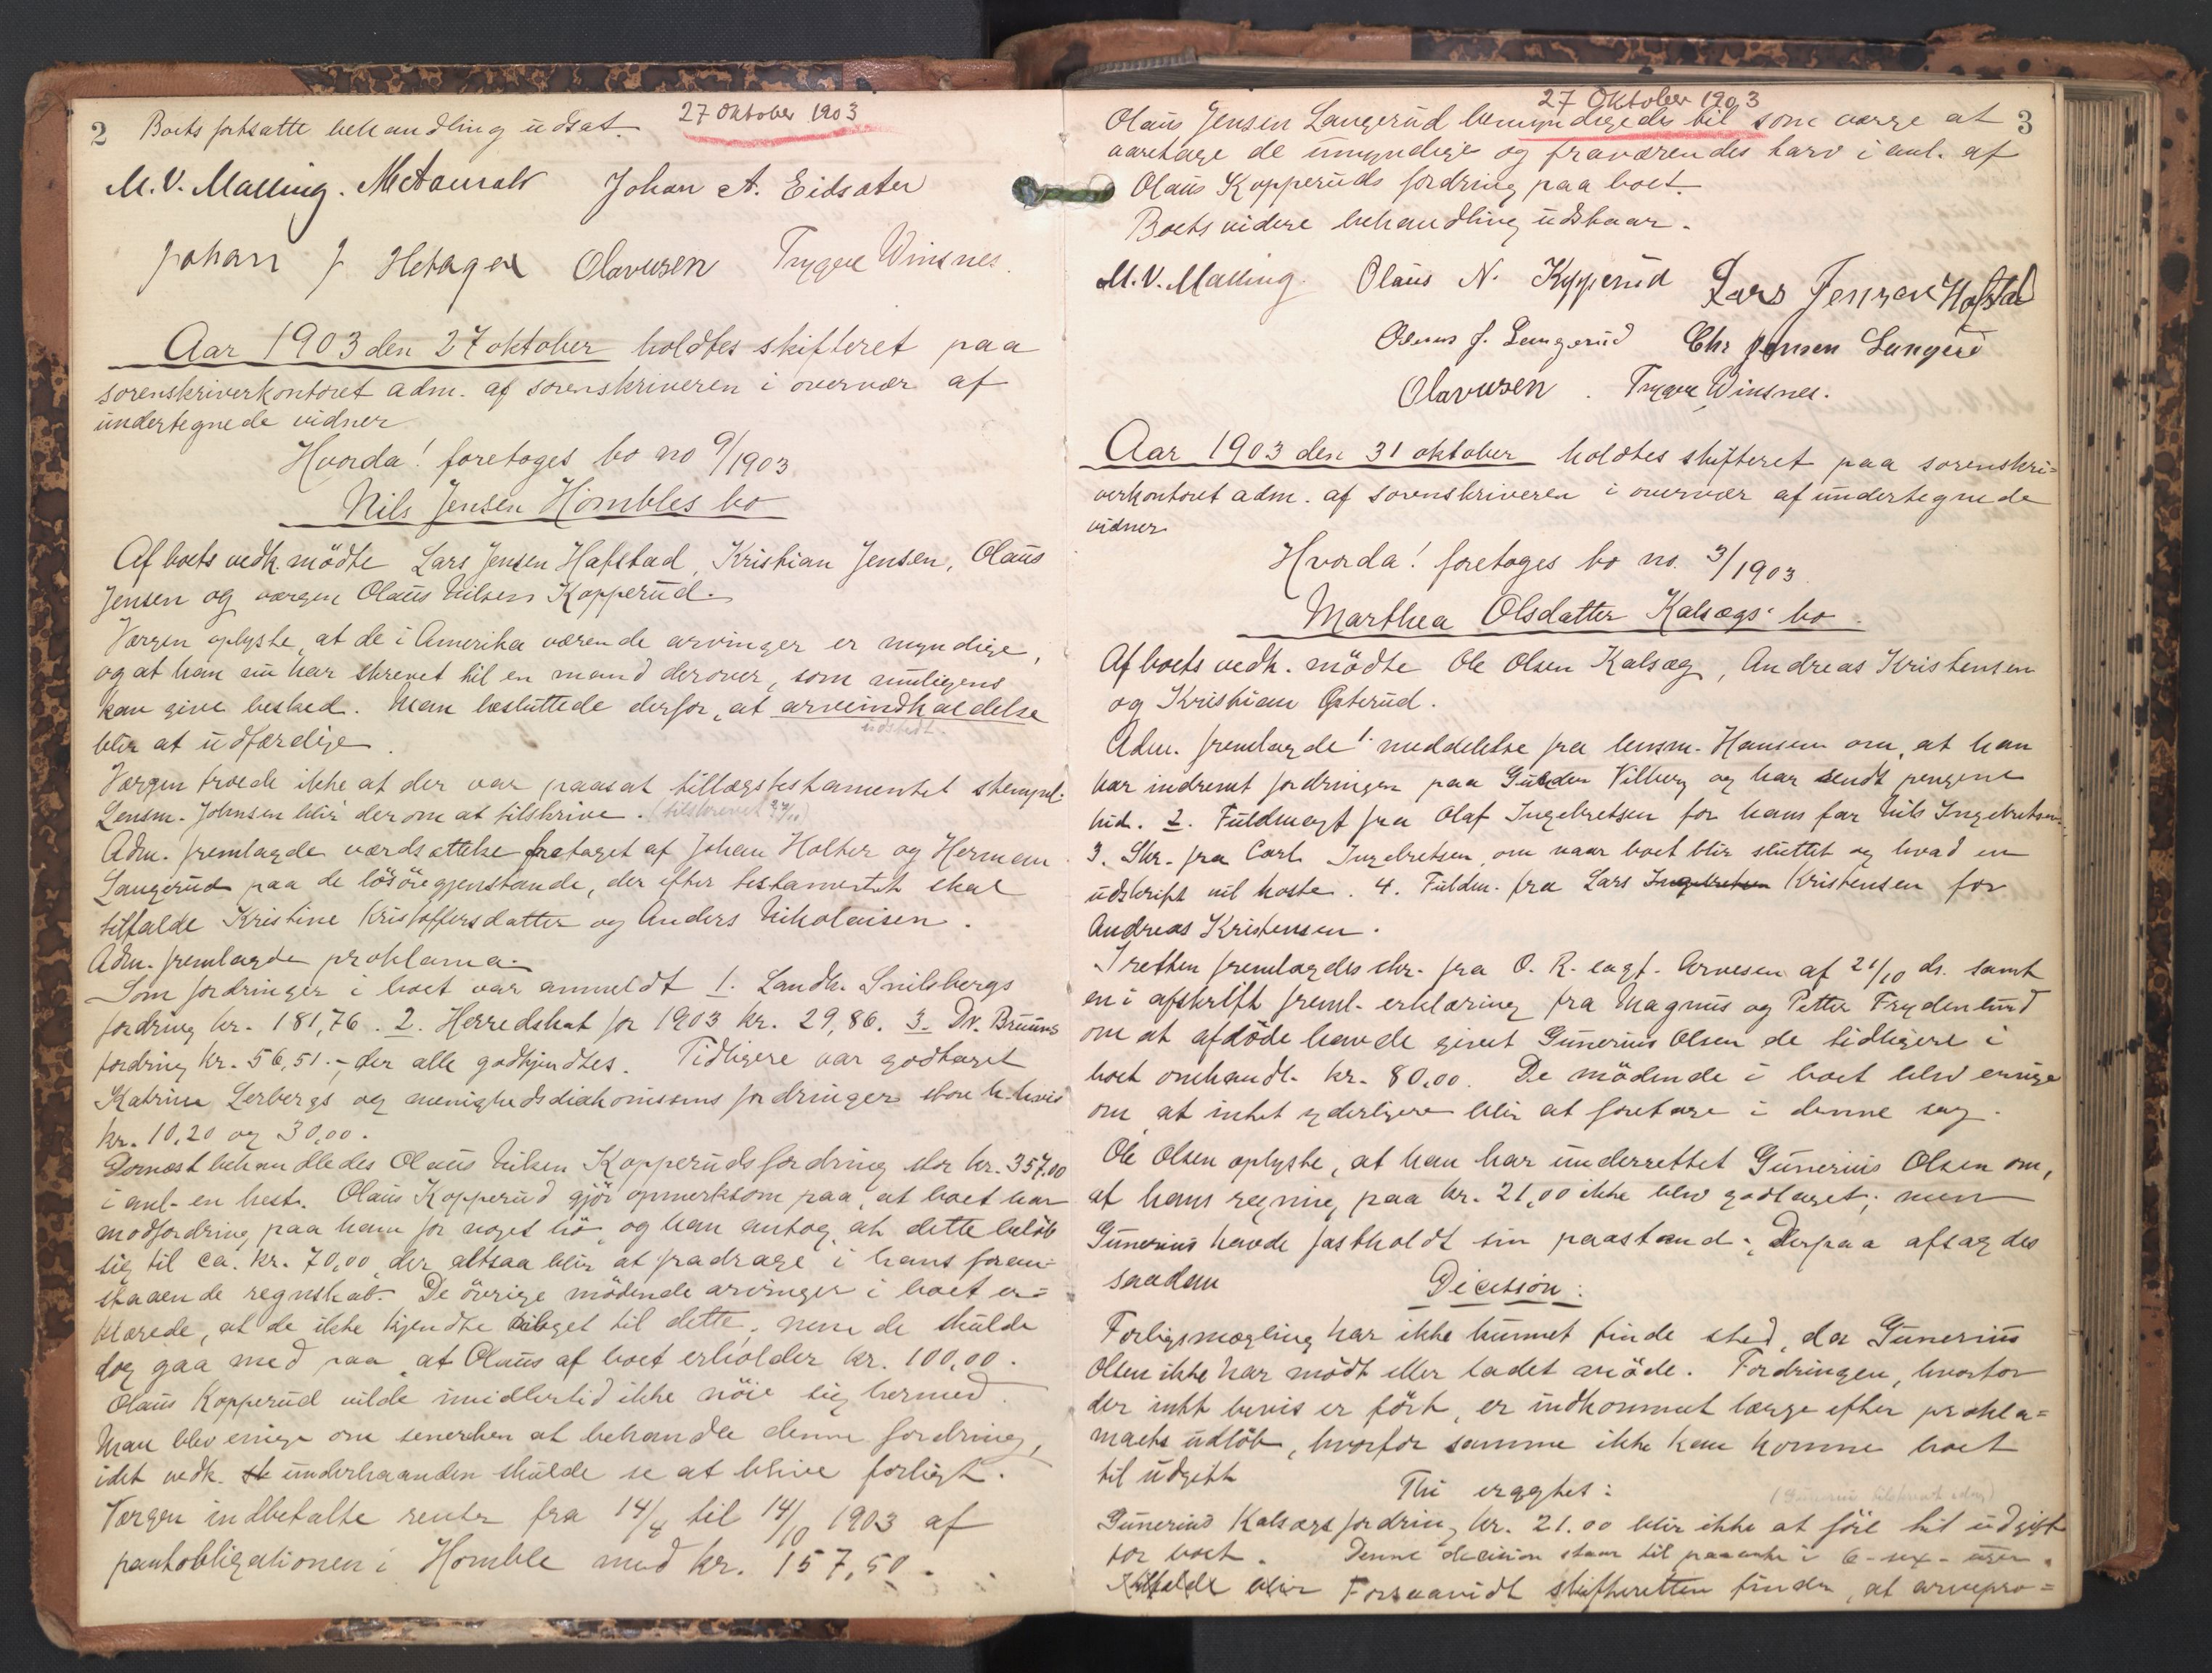 2 Boets fortsatte behandling udsat. 27 Oktober 1903
M. V. Malling. Johan A. Eidsater
Johan J Hetager Olavesen Trygve Winsnes.
Aar 1903 den 27 oktober holdtes skifteret paa
sorenskriverkontoret adm. af sorenskriveren i overvær af
undertegnede vidner
Hvorda! foretoges bo no 9/1903
Nils Jensen Hombles bo
Af boets vedk. mödte Lars Jensen Hafstad, Kristian Jensen, Olaus
Jensen og værgen Olaus Nilsen Kopperud.
Værgen oplyste, at de i Amerika værende arvinger er myndige,
og at han nu har skrevet til en mand derover, som muligens
kan give besked. Man besluttede derfor, at arveindkaldelse
udstedt.
blir at udfærdige.
Værgen troede ikke at der var paasat tillægstestamentet stempel.
Lensm. Johnsen blir derom at tilskrive. (tilskrevet 27/11)
Adm. fremlagde værdsættelse foretaget af Johan Holter og Herman
Langerud paa de lösöregjenstande, der efter testamentet skal
tilfalde Kristine Kristoffersdatter og Anders Nikolaisen.
Adm. fremlagde proklama.
Som fordringer i boet var anmeldt 1. Landh. Snilsbergs
fordring kr. 181,76. 2. Herredskat for 1903 kr. 29,86. 3. Dr. Bruuns
fordring kr. 56,51.-, der alle godkjendtes. Tidligere var godtaget
Katrine Lerbergs og menighedsdiakonissens fordringer store h.hvis
kr. 10,20 og 30,00.
Dernæst behandledes Olaus Nilsen Kopperuds fordring stor kr. 357.00
i anl. en hest. Olaus Kopperud gjör opmerksom paa, at boet har
modfordring paa ham for noget hö, og han antog, at dette belöb
sig til ca. kr. 70,00, der altsaa blir at fradrage i hans foran=
staaende regnskab. De övrige mödende arvinger i boet er=
klærede, at de ikke kjendte til dette, men de skulde
dog gaa med paa, at Olaus af boet erholder kr. 100,00.
Olaus Kopperud vilde imidlertid ikke nöie sig hermed.
Man blev enige om senerhen at behandle denne fordring,
idet vedk. underhaanden skulde se at blive forligt.
Værgen indbetalte renter fra 14/4 til 14/10 1903 af
pantobligationen i Homble med kr. 157,50.
27 Oktober 1903
3
Olaus Jensen Langerud bemyndigedes til som værge at
varetage de umyndige og fraværendes tarv i anl. af
Olaus Kopperuds fordring paa boet.
Boets videre behandling udstaar.
M. V. Malling. Olaus N. Kopperud Lars Jensen Hafstad
Olaus J. Langerud Chr Jensen Langerud
Olavesen. Trygve Winsnes.
Aar 1903 den 31 oktober holdtes skifteret paa sorenskri=
verkontoret adm. af sorenskriveren i overvær af undertegnede
vidner
Hvorda! foretoges bo no. 3/1903.
Marthea Olsdatter Kalsægs bo.
Af boets vedk. mödte Ole Olsen Kalsæg, Andreas Kristensen
og Kristian Østerud.
Adm. fremlagde 1. meddelelse fra lensm. Hansen om, at han
har inddrevet fordringen paa Gulder Vilberg og har sendt pengene
hid. 2. Fuldmagt fra Olaf Ingebretsen for hans far Nils Ingebretsen.
3. Skr. fra Carl Ingebretsen, om naar boet blir sluttet og hvad en
udskrift vil koste. 4. Fuldm. fra Lars Ingebretsen Kristensen for
Andreas Kristensen.
I retten fremlagdes skr. fra O. R. sagf. Arvesen af 21/10 ds. samt
en i afskrift freml. erklæring fra Magnus og Petter Frydenlund
om at afdöde havde givet Gunerius Olsen de tidligere i
boet omhandl. kr. 80,00. De mödende i boet blev enige
om at intet yderligere blir at foretage i denne sag.
Ole Olsen oplyste, at han har underrettet Gunerius Olsen om,
at hans regning paa kr. 21,00 ikke blev godtaget, men
Gunerius havde fastholdt sin paastand. Derpaa afsagdes
saadan Decision:
Forligsmægling har ikke kunnet finde sted, da Gunerius
Olsen ikke har mödt eller ladet möde. Fordringen, hvorfor
der intet bevis er fört, er indkommet længe efter prokla=
maets udlöb, hvorfor samme ikke kan komme boet
til udgift
Thi eragtes:
Gunerius Kalsægs fordring kr. 21.00 blir ikke at före til udgift
for boet. Denne decision staar til paaanke i 6-sex-uger.
Forsaavidt skifteretten finder, at arvepro=